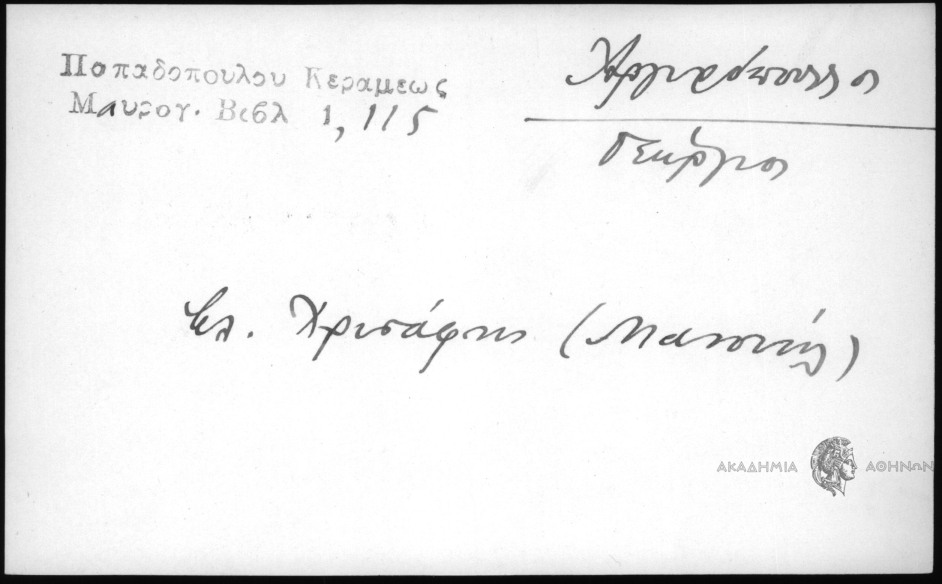 Παπαδοπουλου Κεραμεως
Μαυρογ. Βιβλ 1, 115
Ἀργυρόπουλος
Γεώργιος
Βλ. Χρυσάφης (Μανουήλ)
ΑΚΑΔΗΜΙΑ ΑΘΗΝΩΝ